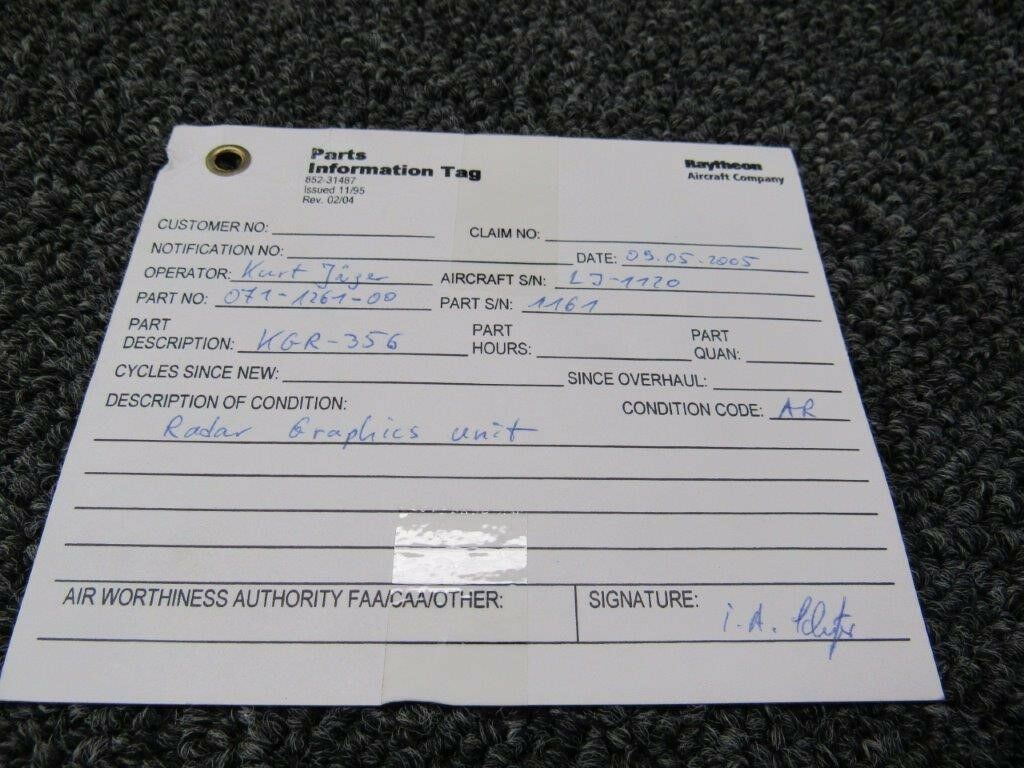 Parts
Information Tag
852-31487
Issued 11/95
Rev. 02/04
Raytheon
Aircraft Company
CUSTOMER NO:
CLAIM NO:
NOTIFICATION NO:
DATE: 09.05.2005
OPERATOR: Kurt Jäger
AIRCRAFT S/N: LJ-1120
PART NO: 071-1261-00
PART S/N: 1161
PART
DESCRIPTION: KGR-356
PART
HOURS:
PART
QUAN:
CYCLES SINCE NEW:
SINCE OVERHAUL:
DESCRIPTION OF CONDITION:
CONDITION CODE: AR
Radar Graphics unit
AIR WORTHINESS AUTHORITY FAA/CAA/OTHER:
SIGNATURE: i.A.